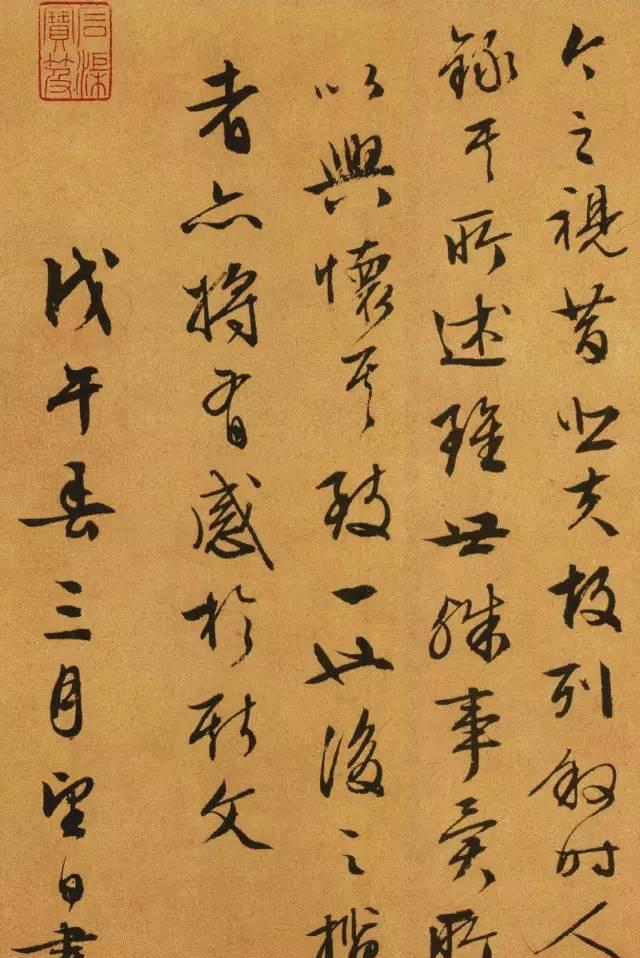 今之視昔悲夫故列叙時人
錄其所述雖世殊事異所
以興懷其致一也後之攬
者亦将有感於斯文
戊午春三月望日書
石渠寶笈